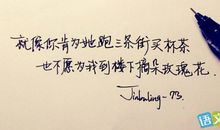 就像你肯为她跑三条街买杯茶
也不愿为我到楼下摘朵玫瑰花.
语文